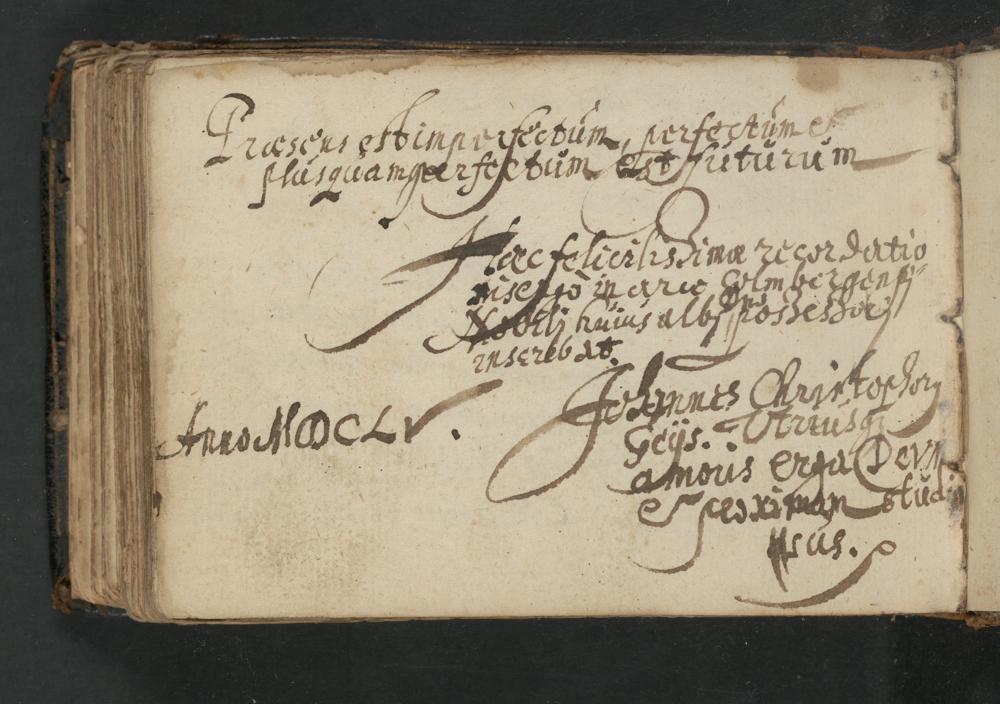 Præsens est imperfectum, perfectum et
plusquamperfectum est futurum
Hæc felicissimæ recordatio
in arce Colmbergensi
Nobili huius albj possessori
inserebat
Johannes Christophorus
Anno MDCLV.
Utriusq
amoris erga Deum
et proximum studio
sus.